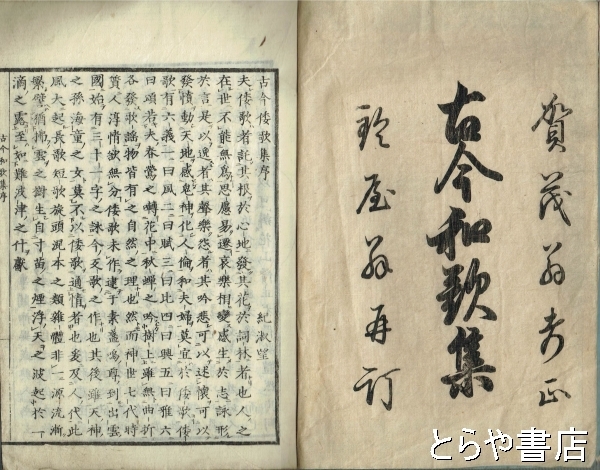 賀茂翁考正
古今和歌集
鈴屋翁再訂
古今倭歌集序
紀淑望
夫倭歌者託其根於心地發其花於詞林者也人之
在世不能無為思慮易遷哀樂相變感生於志詠形
於言是以逸者其聲樂怨者其吟悲可以述懷可以
發憤動天地感鬼神化人倫和夫婦莫宜於倭歌倭
歌有六義一曰風二曰賦三曰比四曰興五曰雅六
曰頌若夫春鶯之囀花中秋蟬之吟樹上雖無曲折
各發歌謠物皆有之自然之理也然而神世七代時
質人淳情欲無分倭歌未作逮于素盞嗚尊到出雲
國始有三十一字之詠今反歌之作也其後雖天神
之孫海童之女莫不以倭歌通情者也爰及人代此
風大起長歌短歌旋頭混本之類雜體非一源流漸
繁譬猶拂雲之樹生自寸苗之煙浮天之波起於一
滴之露至如難波津之什獻
古今和歌集序
とらや書店